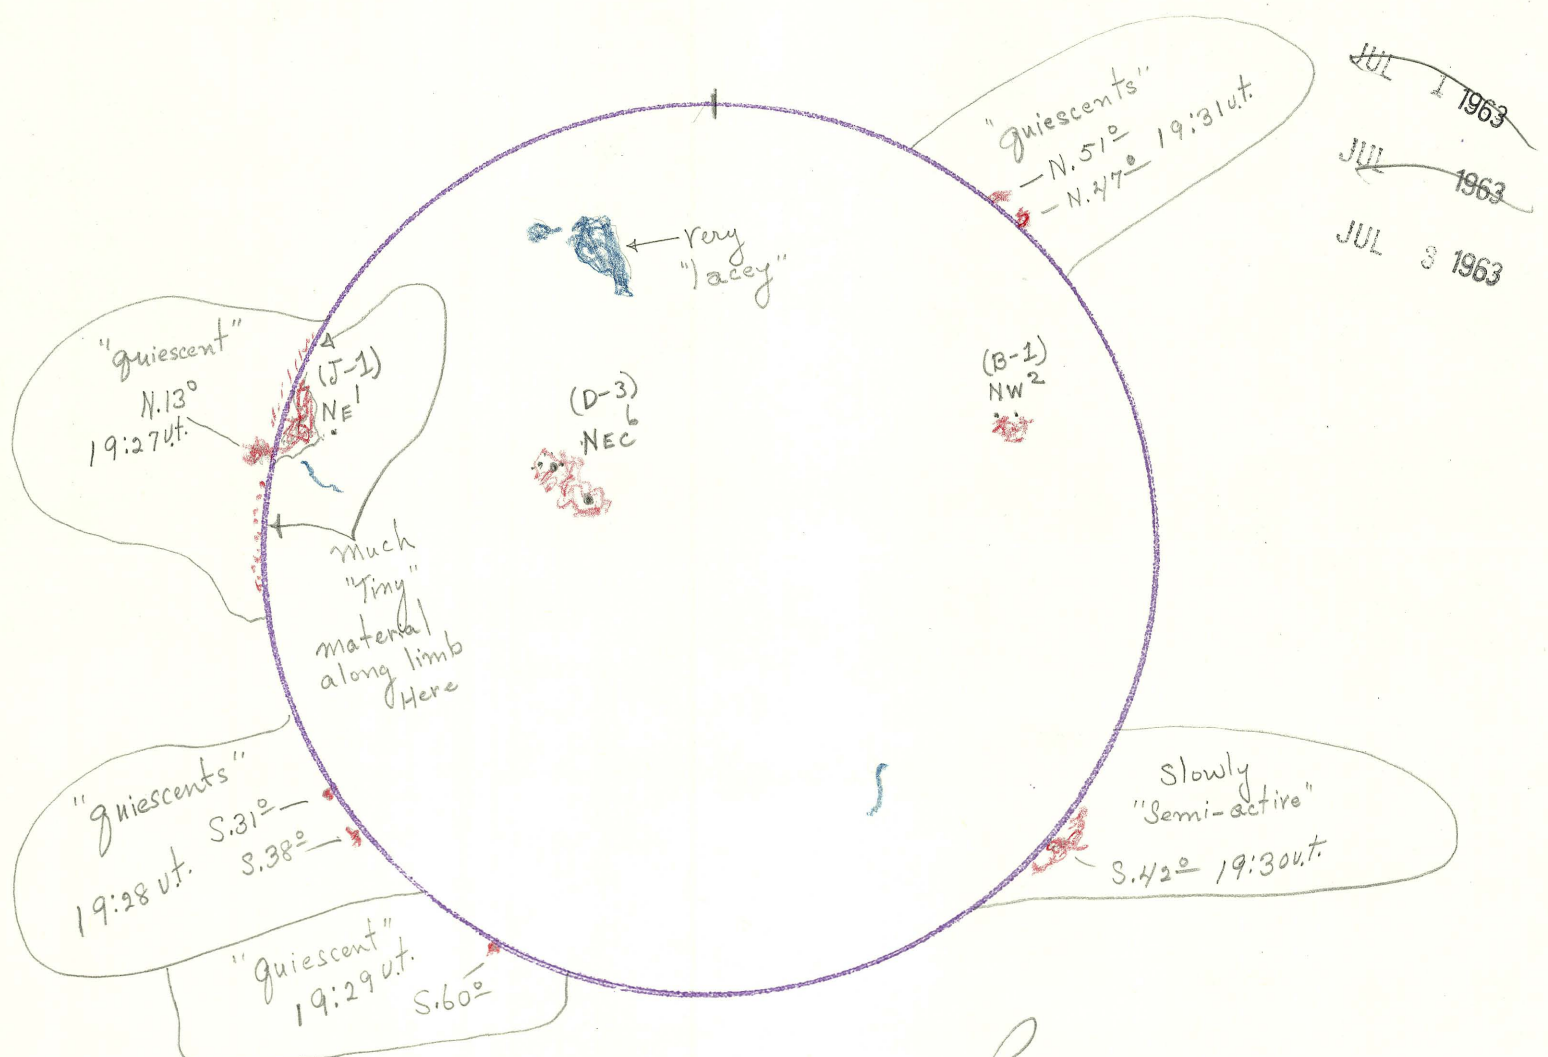 "quiescents"
N.51º
N.47º 19:31 u.t.
JUL 1 1963
JUL 1963
JUL 3 1963
very
"lacey"
"quiescent"
N.13°
19:27 u.t.
(J-1)
NE 1
(D-3)
NEC 6
(B-1)
NW 2
Much
"Tiny"
material
along limb
Here
"quiescents"
S.31º
S.38º
19:28 u.t.
"quiescent"
19:29 u.t.
S.60º
Slowly
"Semi-active"
S.42º 19:30 u.t.